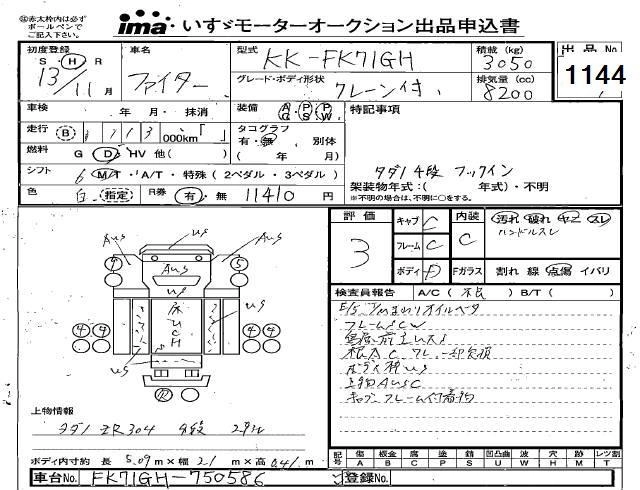 ㊟赤太枠内は必ず
ボールペンで
ご記入下さい。
ima いすゞモーターオークション出品申込書
初度登録 S・H・R 13/11月
車名 ファイター
型式 KK-FK71GH
積載(kg) 3050
グレード・ボディ形状 クレーン付
排気量(cc) 8200
出品No. 1144
車検 年 月・抹消
装備 AC PS PW
特記事項
走行 B 113 000km
タコグラフ 有・無 別体 ( 年 月)
燃料 G D HV 他( )
シフト 6 M/T・A/T・特殊(2ペダル・3ペダル)
タダノ4段 フックイン
架装物年式:( 年式)・不明
※不明の場合は、不明に○をする。
色 白 指定 R券 有・無 11410 円
評価 3
キャブ C
フレーム C
ボディ D
内装 C
汚れ 破れ ヤニ スレ
ハンドルスレ
Fガラス 割れ 線 点傷 イバリ
検査員報告 A/C( ) B/T( )
E/S T/Mまわりオイルベタ
フレームSCW
ボディ枠US
上物AUSC
キャブ フレーム付着物
AUS US AUS
4 5
AUS
US US
床UCH
4 4 4 4
US US
上物情報
タダノ ZR304 4段
ボディ内寸約 長 5.09 m×幅 2.1 m×高 0.41 m
記号 傷A 板金B 腐C 塗P 錆S 凹凸曲U 波W 穴H 跡M レツ割T
車台No. FK71GH-750586
登録No.